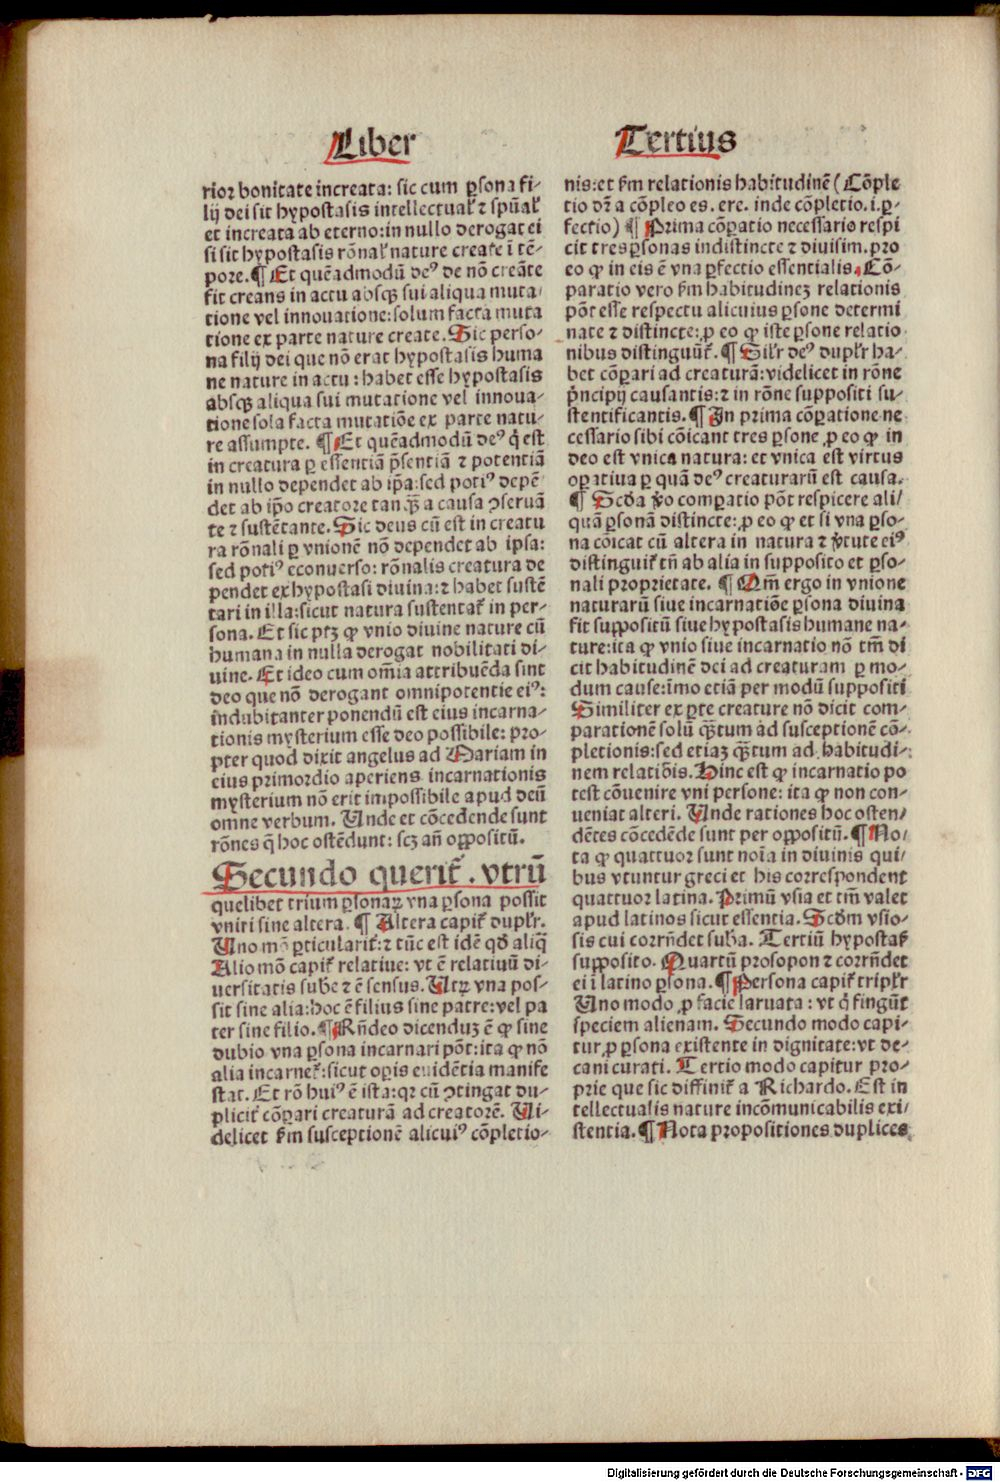 Liber
Tertius
rior bonitate increata: sic cum ꝑsona fi-
lij dei sit hypostasis intellectual̛ ⁊ spūal̛
et increata ab eterno: in nullo derogat ei
si sit hypostasis rōnal̛ nature create ī tē-
pore. ¶ Et quēadmodū deꝰ de nō creāte
fit creans in actu absqꝫ sui aliqua muta-
tione vel innouatione: solum facta muta
tione ex parte nature create. Sic perso-
na filij dei que nō erat hypostasis huma
ne nature in actu: habet esse hypostasis
absqꝫ aliqua sui mutatione vel innoua-
tione sola facta mutatiōe ex parte natu-
re assumpte. ¶ Et quēadmodū deꝰ q̇ est
in creatura ꝑ essentiā p̄sentiā ⁊ potentiā
in nullo dependet ab ip̄a: sed potiꝰ depē
det ab ip̄o creatore tanqꝫ̄ a causa ꝯseruā
te ⁊ sustētante. Sic deus cū est in creatu
ra rōnali ꝑ vnionē nō dependet ab ipsa:
sed potiꝰ econuerso: rōnalis creatura de
pendet ex hypostasi diuina: ⁊ habet sustē
tari in illa: sicut natura sustentat̛ in per-
sona. Et sic ptꝫ ꝙ vnio diuine nature cū
humana in nulla derogat nobilitati di-
uine. Et ideo cum om̄ia attribuēda sint
deo que nō derogant omnipotentie eiꝰ:
indubitanter ponendū est eius incarna-
tionis mysterium esse deo possibile: pro-
pter quod dixit angelus ad Mariam in
eius primordio aperiens incarnationis
mysterium nō erit impossibile apud deū
omne verbum. Unde et cōcedende sunt
rōnes q̄ hoc ostēdunt: scꝫ an̄ oppositū.
Secundo querit̛. vtrū
quelibet trium ꝑsonaꝝ vna ꝑsona possit
vniri sine altera. ¶ Altera capit̛ dupl̛r.
Uno mō ꝑticularit̛: ⁊ tūc est idē qđ aliq̄
Alio mō capit̛ relatiue: vt ē relatiuū di-
uersitatis sube ⁊ ē sensus. Utꝝ vna pos-
sit sine alia: hoc ē filius sine patre: vel pa
ter sine filio. ¶ Rn̄deo dicenduꝫ ē ꝙ sine
dubio vna ꝑsona incarnari pōt: ita ꝙ nō
alia incarnet̛: sicut oꝑis euidētia manife
stat. Et rō huiꝰ ē ista: qꝛ cū ꝯtingat du-
plicit̛ cōꝑari creaturā ad creatorē. Ui-
delicet ẜm susceptionē alicuiꝰ cōpletio-
nis: et ẜm relationis habitudinē (Cōple
tio dr̄ a cōpleo es. ere. inde cōpletio. i. ꝑ-
fectio) ¶ Prima cōꝑatio necessario respi
cit tres ꝑsonas indistincte ⁊ diuisim. pro
eo ꝙ in eis ē vna ꝑfectio essentialis. Cō-
paratio vero ẜm habitudinez relationis
pōt esse respectu alicuius ꝑsone determi
nate ⁊ distincte: ꝓ eo ꝙ iste ꝑsone relatio
nibus distinguūt̛. ¶ Sil̛r deꝰ dupl̛r ha-
bet cōꝑari ad creaturā: videlicet in rōne
p̄ncipij causantis: ⁊ in rōne suppositi su-
stentificantis. ¶ In prima cōꝑatione ne
cessario sibi cōicant tres ꝑsone ꝓ eo ꝙ in
deo est vnica natura: et vnica est virtus
oꝑatiua ꝑ quā deꝰ creaturarū est causa.
¶ Scđa v̓o comꝑatio pōt respicere ali-
quā ꝑsonā distincte: ꝓ eo ꝙ et si vna ꝑso-
na cōicat cū altera in natura ⁊ v̓tute eiꝰ
distinguit̛ tn̄ ab alia in supposito et ꝑso-
nali proprietate. ¶ Qm̄ ergo in vnione
naturarū siue incarnatiōe ꝑsona diuina
fit suppositū siue hypostasis humane na-
ture: ita ꝙ vnio siue incarnatio nō tm̄ di
cit habitudinē dei ad creaturam ꝑ mo-
dum cause: imo etiā per modū suppositi
Similiter ex ꝑte creature nō dicit com-
parationē solū qꝫ̄tum ad susceptionē cō-
pletionis: sed etiaꝫ qꝫ̄tum ad habitudi-
nem relatiōis. Hinc est ꝙ incarnatio po
test cōuenire vni persone: ita ꝙ non con-
ueniat alteri. Unde rationes hoc osten-
dētes cōcedēde sunt per oppositū. ¶ No-
ta ꝙ quattuor sunt noīa in diuinis qui-
bus vtuntur greci et his correspondent
quattuor latina. Primū vsia et tm̄ valet
apud latinos sicut essentia. Scđm vsio-
sis cui corrn̄det suba. Tertiū hypostas̛
supposito. Quartū prosopon ⁊ corrn̄det
ei ī latino ꝑsona. ¶ Persona capit̛ tripl̛r
Uno modo ꝓ facie laruata: vt q̇ fingūt
speciem alienam. Secundo modo capi-
tur ꝓ ꝑsona existente in dignitate: vt de-
cani curati. Tertio modo capitur pro-
prie que sic diffinit̛ a Richardo. Est in
tellectualis nature incōmunicabilis exi-
stentia. ¶ Nota propositiones duplices
Digitalisierung gefördert durch die Deutsche Forschungsgemeinschaft - DFG